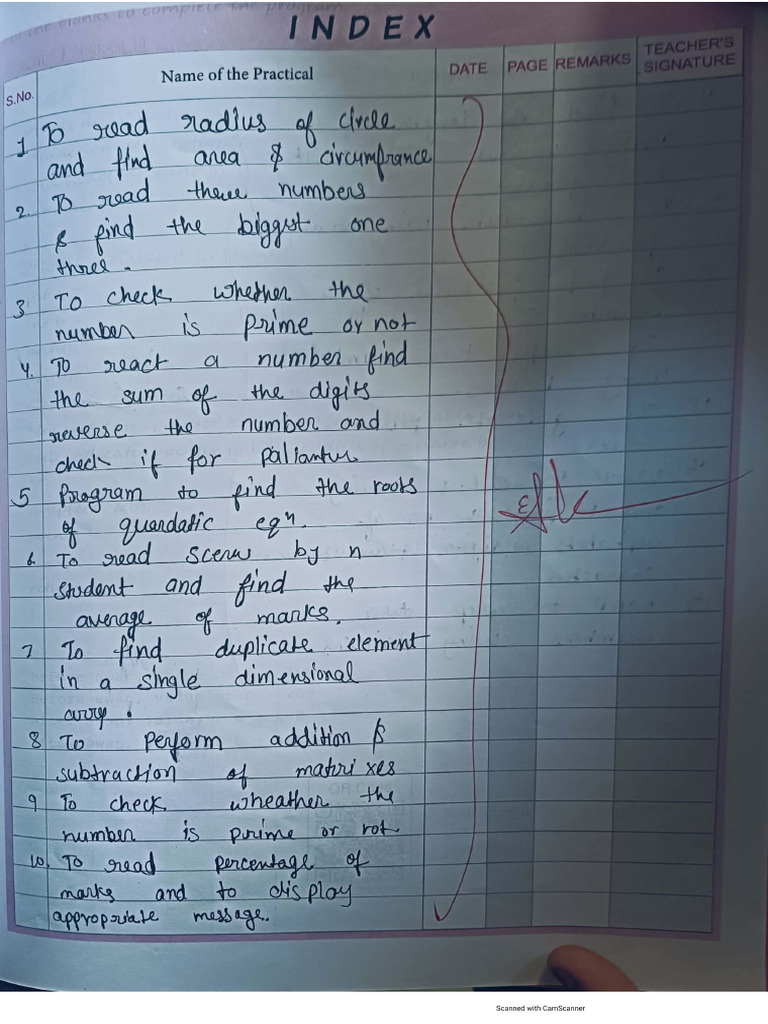 INDEX
S.No.
Name of the Practical
DATE
PAGE
REMARKS
TEACHER'S
SIGNATURE
1 To read radius of circle
and find area & circumfrance
2. To read three numbers
& find the biggest one
three.
3 To check whether the
number is prime or not
4. To react a number find
the sum of the digits
reverse the number and
check if for paliantus
5 Program to find the roots
of quardatic eqn.
6. To read by n
student and find the
average of marks.
7 To find duplicate element
in a single dimensional
arry.
8 To perform addition &
subtraction of matrixes
9 To check wheather the
number is prime or not
10. To read percentage of
marks and to display
appropriate message.
Scanned with CamScanner